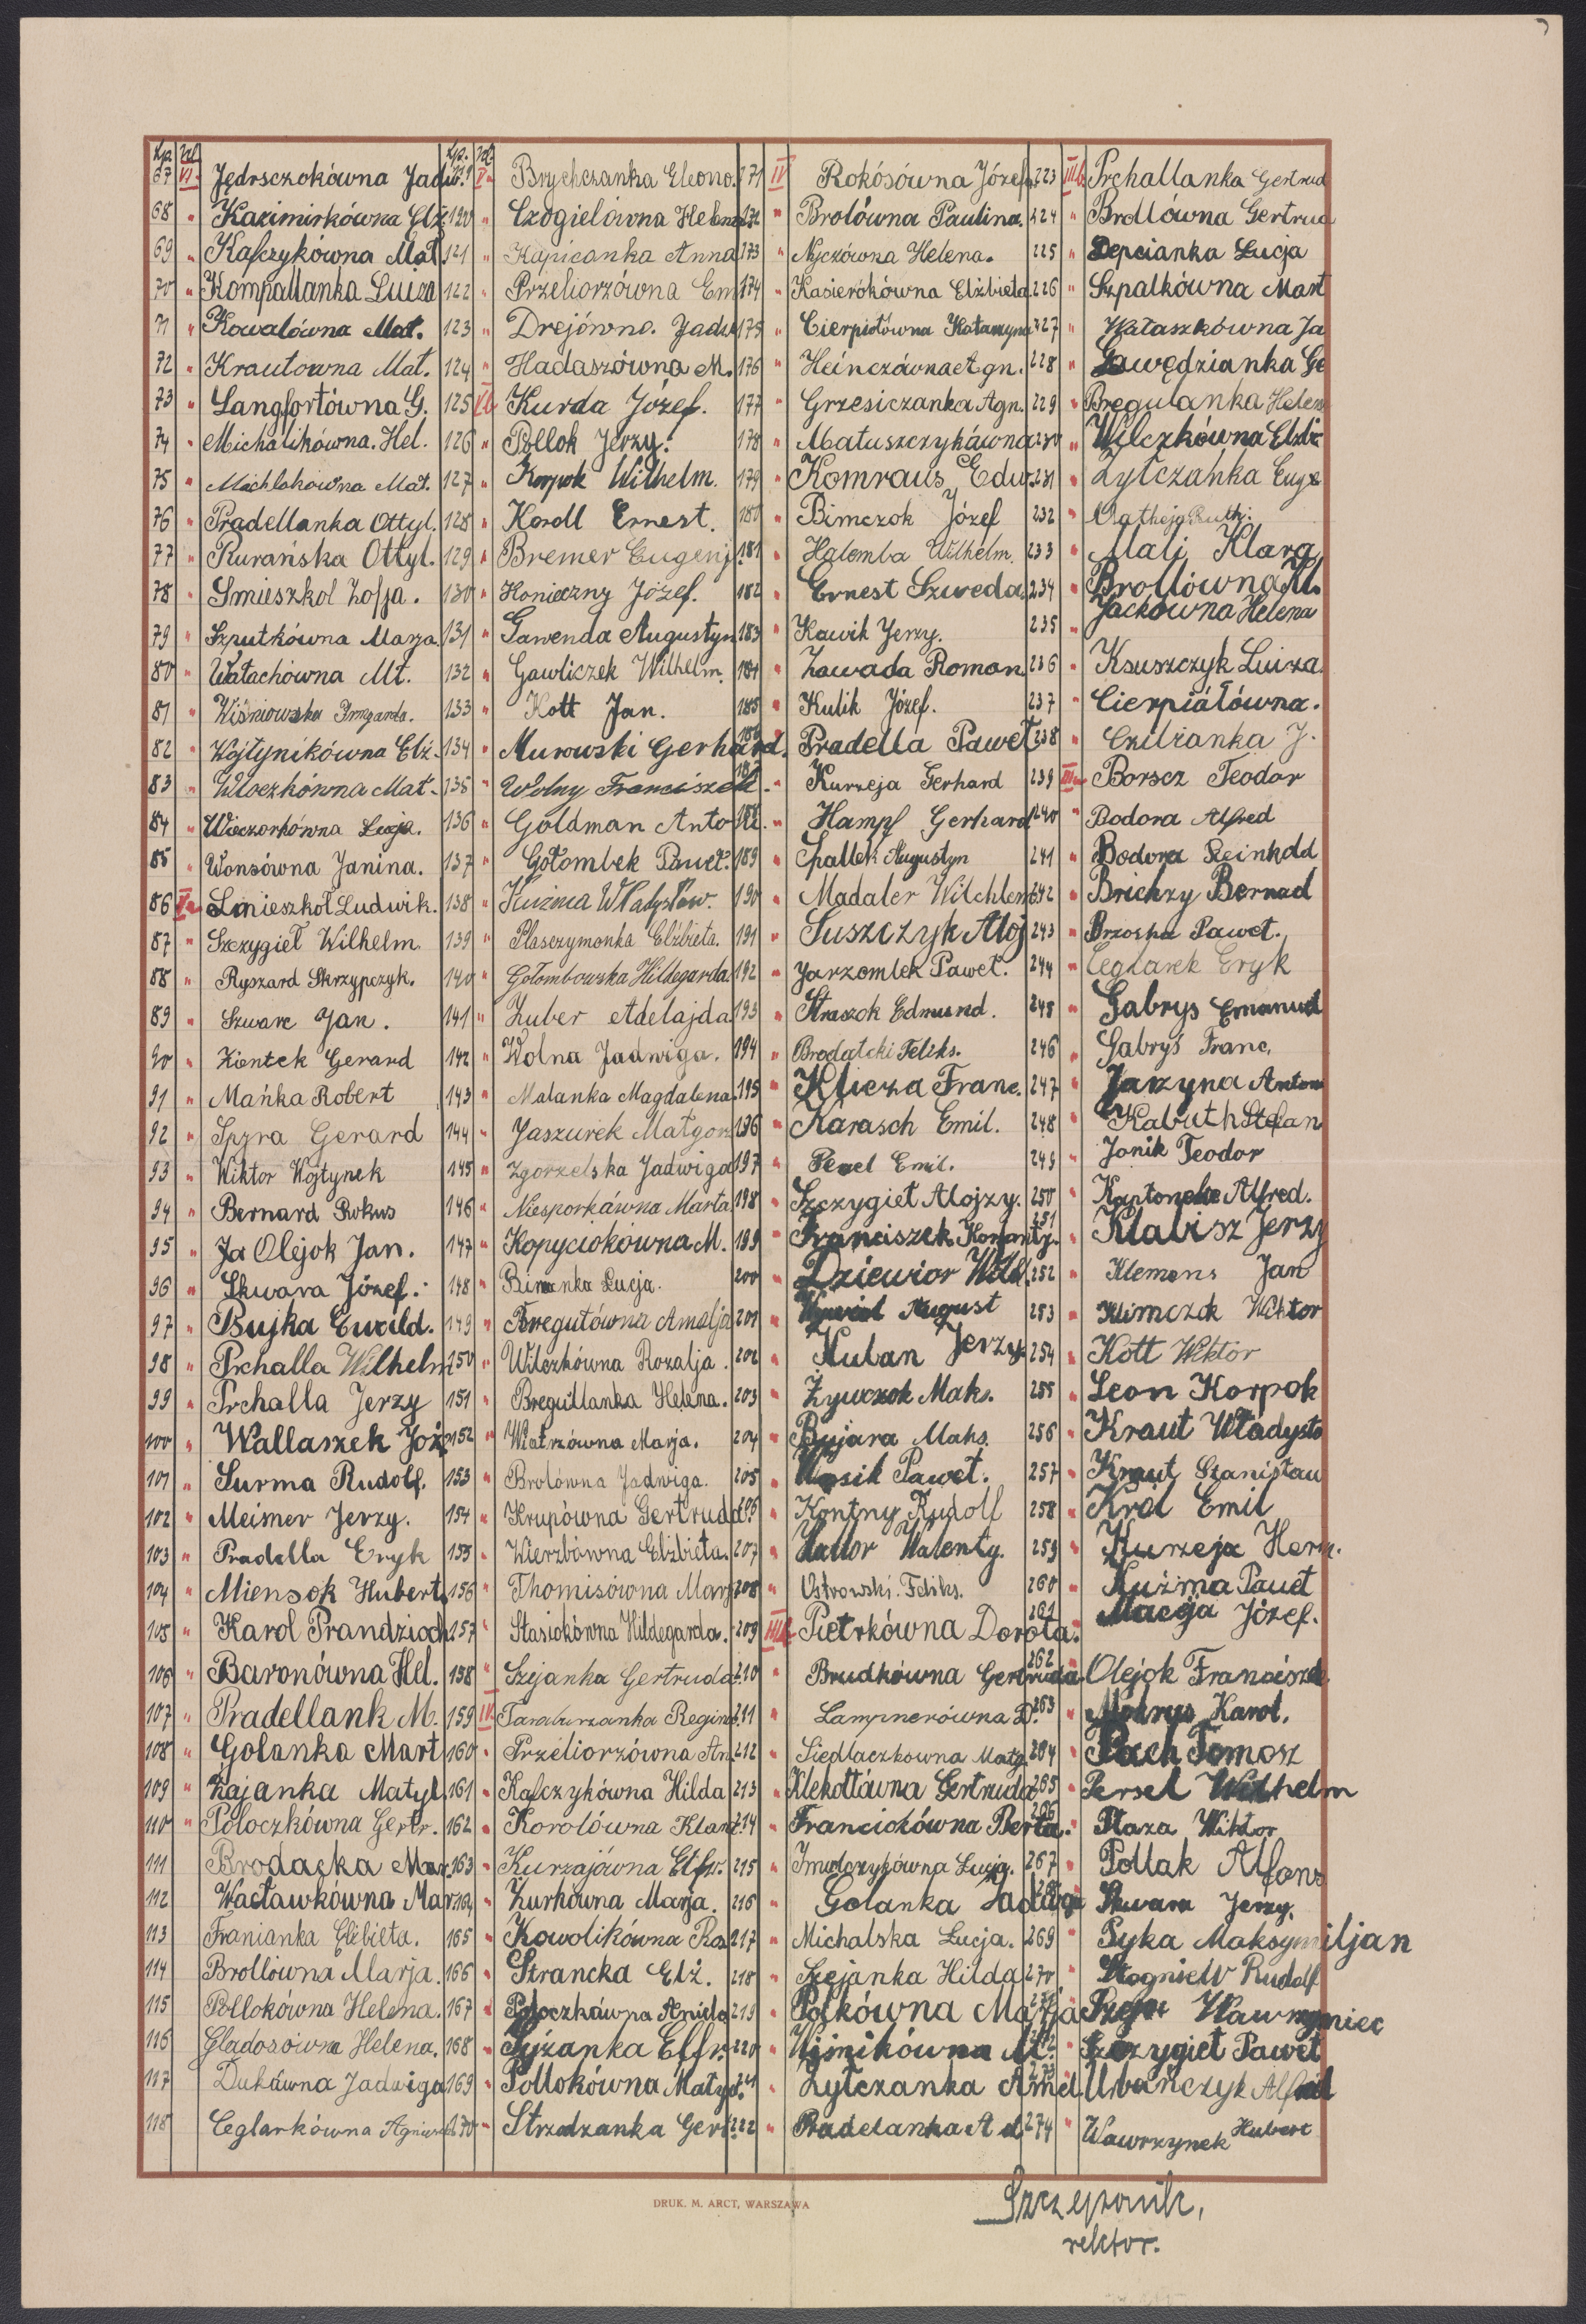 Lp. Kl.
67 VI. Jędrsczokówna Jadw.
68 " Kazimirkówna Elż.
69 " Kafczykówna Mat.
70 " Kompallanka Luiza
71 " Kowalówna Mat.
72 " Krautowna Mat.
73 " Langfortówna G.
74 " Michalikówna. Hel.
75 " Michlokowna Mat.
76 " Pradellanka Ottyl.
77 " Rurańska Ottyl.
78 " Smieszkol Zofja.
79 " Szputkówna Marja.
80 " Watachówna Mt.
81 " Wiśniowska Irmgarda.
82 " Wojtynikówna Elż.
83 " Wloczkówna Mat.
84 " Wieczorkówna Łucja.
85 " Wonsówna Janina.
86 Va Smieszkoł Ludwik.
87 " Szczygieł Wilhelm.
88 " Ryszard Skrzypczyk.
89 " Szwarc Jan.
90 " Ziontek Gerard
91 " Mańka Robert
92 " Spyra Gerard
93 " Wiktor Wojtynek
94 " Bernard Rokus
95 " Ja Olejok Jan.
96 " Skwara Józef.
97 " Bujka Ewald.
98 " Prchalla Wilhelm
99 " Prchalla Jerzy
100 " Wallaszek Józ
101 " Surma Rudolf.
102 " Meisner Jerzy.
103 " Pradella Eryk
104 " Miensok Hubert
105 " Karol Prandzioch
106 " Baronówna Hel.
107 " Pradellank M.
108 " Golanka Mart
109 " Zajanka Matyl
110 " Poloczkówna Gertr.
111 Brodacka Mar
112 Wacławkówna Mar
113 Franianka Elżbieta.
114 Brollówna Marja.
115 Pollokówna Helena.
116 Gladosówna Helena.
117 Dukówna Jadwiga
118 Ceglarkówna Agnies
Lp. Kl.
119 V. Brychczanka Eleono.
120 " Czogielówna Helena
121 " Kapicanka Anna
122 " Przeliorzówna Em
123 " Drejówna. Jadw
124 " Hadaszówna M.
125 Vb Kurda Józef.
126 " Pollok Jerzy.
127 " Korpok Wilhelm.
128 " Kordl Ernest.
129 " Bremer Eugenj.
130 " Konieczny Józef.
131 " Gawenda Augustyn
132 " Gawliczek Wilhelm.
133 " Kott Jan.
134 " Murowski Gerhard.
135 " Wolny Franciszek.
136 " Goldman Antoni.
137 " Gołombek Paweł.
138 " Kuźma Władysław.
139 " Plasczymonka Elżbieta.
140 " Gołombowska Hildegarda
141 " Zuber Adelajda
142 " Wolna Jadwiga.
143 " Malanka Magdalena.
144 " Jaszurek Małgorz
145 " Zgorzelska Jadwiga
146 " Niesporkówna Marta
147 " Kopyciokówna M.
148 " Bimanka Łucja.
149 " Bregułówna Amalja
150 " Wilczkówna Rozalja.
151 " Bregullanka Helena.
152 " Watrzówna Marja.
153 " Brolówna Jadwiga.
154 " Krupówna Gertruda
155 " Wierzbówna Elżbieta.
156 " Thomisówna Marj
157 " Stasiokówna Hildegarda.
158 " Szejanka Gertruda
159 IV. Taraburzanka Regina
160 " Przeliorzówna An
161 " Kalczykówna Hilda
162 " Korolówna Klara
163 " Kurzajówna Elfr.
164 " Żurkówna Marja.
165 " Kowolikówna Roz
166 " Strancka Elż.
167 " Poloczkówna Aniela
168 " Syżanka Elfr.
169 " Pollokówna Matyl.
170 " Strzodzanka Gert
171 IV Rokósówna Józefa
172 " Brolówna Paulina.
173 " Nyczówna Helena.
174 " Kasierókówna Elżbieta
175 " Cierpiołówna Katarzyna
176 " Heinczówna Agn.
177 " Grzesiczanka Agn.
178 " Matuszczykówna
179 " Komraus Edw.
180 " Bimczok Józef
181 " Halemba Wilhelm.
182 " Ernest Szweda
183 " Kawik Jerzy.
184 " Zawada Roman
185 " Kulik Józef.
186 " Pradella Paweł
187 " Kurzeja Gerhard
188 " Hampf Gerhard
189 " Spallek Augustyn
190 " Madaler Wilchlem
191 " Suszczyk Aloj
192 " Jarzombek Paweł.
193 " Straszok Edmund.
194 " Brodatcki Feliks.
195 " Klicza Franc.
196 " Karasch Emil.
197 " Pexel Emil.
198 " Szczygieł Alojzy.
199 " Franciszek Konanty.
200 " Dziewior Wilh.
201 " August
202 " Kuban Jerzy
203 " Żywczok Maks.
204 " Bujara Maks.
205 " Wosik Paweł.
206 " Kontny Rudolf
207 " Walenty.
208 " Ostrowski. Feliks.
209 IIIb Pietrkówna Dorota.
210 " Brudkówna Gertruda
211 " Lampnerówna D.
212 " Siedlaczkowna Małg.
213 " Klekottówna Gertruda
214 " Franciokówna Berta.
215 " Łucja.
216 " Golanka Jadwiga
217 " Michalska Łucja.
218 " Szejanka Hilda
219 " Polkówna Marja
220 " Wijnikówna M.
221 " Zytczanka Amel.
222 " Pradelanka Ad
223 IIIb Prchallanka Gertrud
224 " Brollówna Gertrud
225 " Depcianka Łucja
226 " Szpalkówna Mart
227 " Wałaszkówna Ja
228 " Gawędzianka Ge
229 " Bregulanka Helen
230 " Wilczkówna Elżbi
231 " Zytczańka Euge
232 " Matheja Ruth.
233 " Malj Klara
234 " Brollówna Kl.
235 " Jackówna Helena
236 " Ksuszczyk Luiza.
237 " Cierpiáłówna.
238 " Czilżanka J.
239 IIIa Borscz Teodor
240 " Bodora Alfred
241 " Bodora Reinhold
242 " Brichzy Bernad
243 " Brzoska Paweł.
244 " Ceglarek Eryk
245 " Gabrys Emanuel
246 " Gabryś Franc.
247 " Jarzyna Anton
248 " Kabuth Stefan
249 " Jonik Teodor
250 " Alfred.
251 " Klabisz Jerzy
252 " Klemens Jan
253 " Klimczok Wiktor
254 " Kott Wiktor
255 " Leon Korpok
256 " Kraut Władysła
257 " Kraut Stanisław
258 " Król Emil
259 " Kurzeja Herm.
260 " Kuźma Paweł
261 " Macja Józef.
262 Olejok Franciszek
263 " Mokrys Karol.
264 " Pach Tomosz
265 " Persel Wilhelm
266 " Płaza Wiktor
267 " Pollak Alfons
268 Skwara Jerzy.
269 " Pyka Maksymiljan
270 " Stogniew Rudolf
271 Wawrzyniec
272 Szczygieł Paweł
273 Urbańczyk Alfred
274 " Wawrzynek Hubert
DRUK. M. ARCT, WARSZAWA
Szczeponik,
rektor.